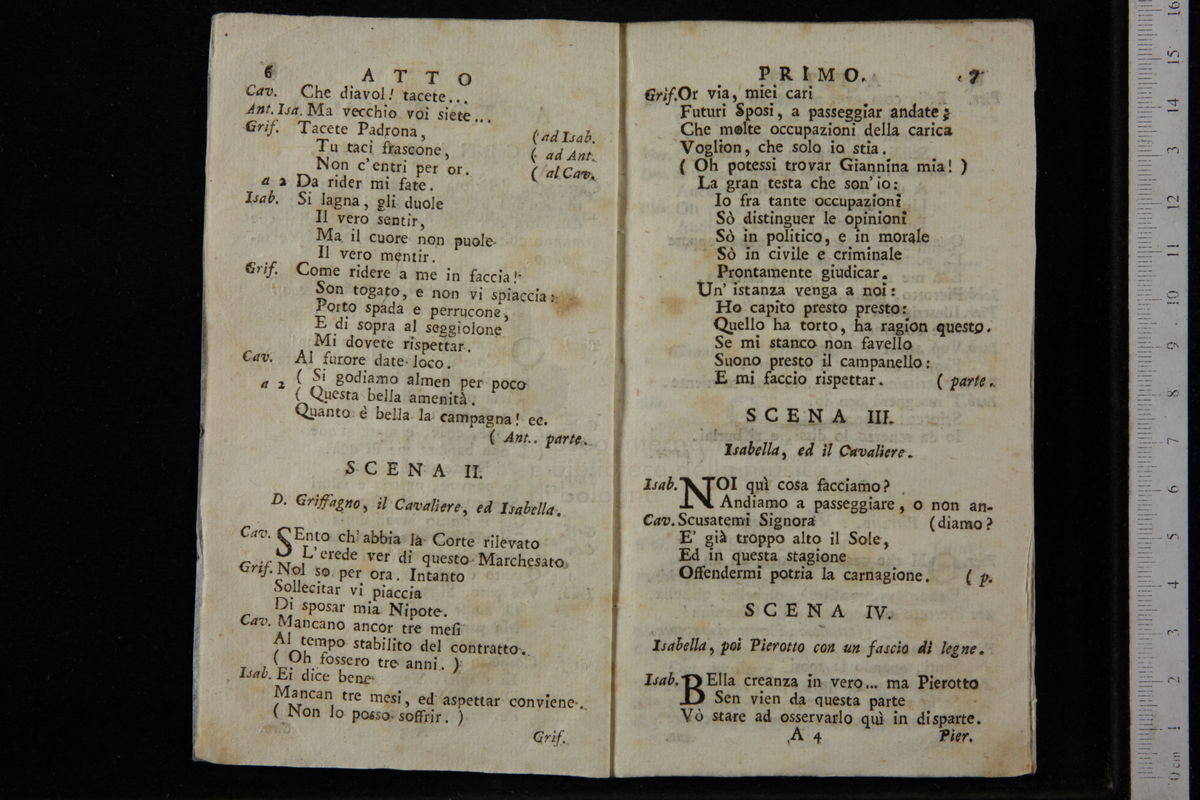 6 ATTO
Cav. Che diavol! tacete...
Ant. Isa. Ma vecchio voi siete...
Grif. Tacete Padrona, (ad Isab.
Tu taci frascone, ( ad Ant.
Non c'entri per or. ( al Cav.
a 2 Da rider mi fate.
Isab. Si lagna, gli duole
Il vero sentir,
Ma il cuore non puole
Il vero mentir.
Grif. Come ridere a me in faccia!
Son togato, e non vi spiaccia:
Porto spada e perrucone,
E di sopra al seggiolone
Mi dovete rispettar.
Cav. Al furore date loco.
a 2 ( Si godiamo almen per poco
( Questa bella amenità.
Quanto è bella la campagna! ec.
( Ant. parte.
SCENA II.
D. Griffagno, il Cavaliere, ed Isabella.
Cav. SEnto ch'abbia la Corte rilevato
L'erede ver di questo Marchesato
Grif. Nol so per ora. Intanto
Sollecitar vi piaccia
Di sposar mia Nipote.
Cav. Mancano ancor tre mesi
Al tempo stabilito del contratto.
( Oh fossero tre anni. )
Isab. Ei dice bene
Mancan tre mesi, ed aspettar conviene.
( Non lo posso soffrir. )
Grif.
PRIMO. 7
Grif. Or via, miei cari
Futuri Sposi, a passeggiar andate;
Che molte occupazioni della carica
Voglion, che solo io stia.
( Oh potessi trovar Giannina mia! )
La gran testa che son'io:
Io fra tante occupazioni
Sò distinguer le opinioni
Sò in politico, e in morale
Sò in civile e criminale
Prontamente giudicar.
Un' istanza venga a noi:
Ho capito presto presto:
Quello ha torto, ha ragion questo.
Se mi stanco non favello
Suono presto il campanello:
E mi faccio rispettar. ( parte.
SCENA III.
Isabella, ed il Cavaliere.
Isab. NOI quì cosa facciamo?
Andiamo a passeggiare, o non an-
Cav. Scusatemi Signora (diamo?
E' già troppo alto il Sole,
Ed in questa stagione
Offendermi potria la carnagione. ( p.
SCENA IV.
Isabella, poi Pierotto con un fascio di legne.
Isab. BElla creanza in vero... ma Pierotto
Sen vien da questa parte
Vò stare ad osservarlo quì in disparte.
A 4 Pier.